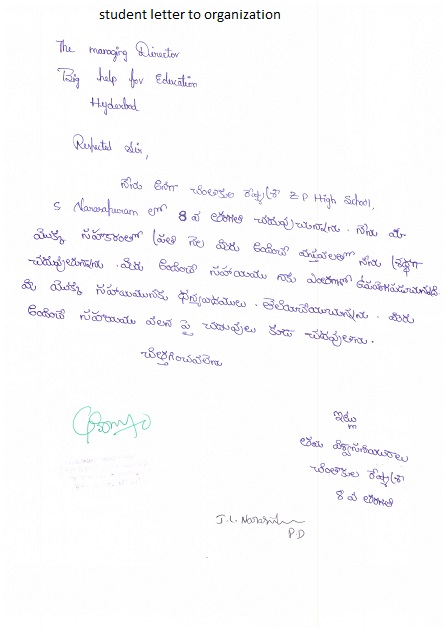 student letter to organization
The managing Director
Big help for Education
Hyderbad
Respected Sir,
నేను అనగా చింతాకుల రేష్మ ZP High School,
S Narasapuram లో 8 వ తరగతి చదువుచున్నాను. నేను మీ
యొక్క సహకారంతో ప్రతి నెల మీరు అందించే వస్తువులతో నేను
చదువుతున్నాను. మీరు అందించే సహాయము నాకు ఎంతగానో ఉపయోగపడుచున్నది
మీ యొక్క సహాయమునకు ధన్యవాదములు. తెలియచేయుచున్నాను. మీరు
అందించే సహాయము వలన పై చదువులు కూడా చదువుతాను.
చిత్తగించవలెను
ఇట్లు
తమ విశ్వాసనీయురాలు
చింతాకుల రేష్మ
8 వ తరగతి
P.D